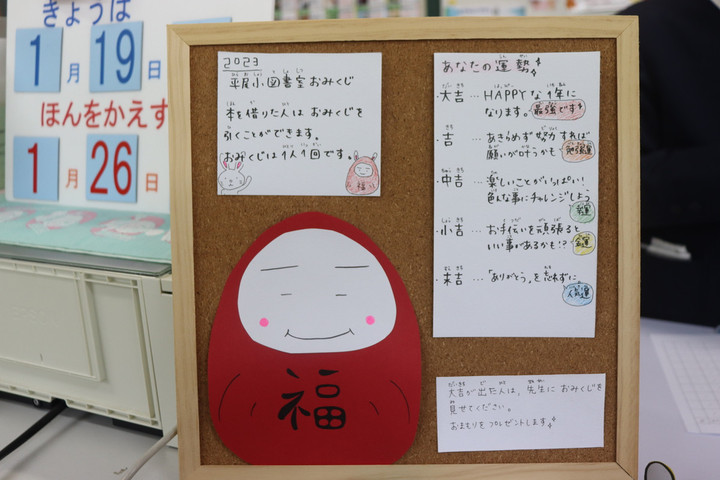 きょうは
1月19日
ほんをかえす
1月26日
2023
平尾小図書室おみくじ
本を借りた人は おみくじを
引くことができます。
おみくじは1人1回です。
福
福
あなたの運勢
大吉…HAPPYな1年に
なります。最強です
吉…あきらめず努力すれば
願いが叶うかも 勉強運
中吉…楽しいことがいっぱい!
色んな事にチャレンジしよう
小吉…お手伝いを頑張ると
いい事があるかも!?金運
末吉…「ありがとう」を忘れずに
人気運
大吉が出た人は、先生に おみくじを
見せてください。
おまもりをプレゼントします